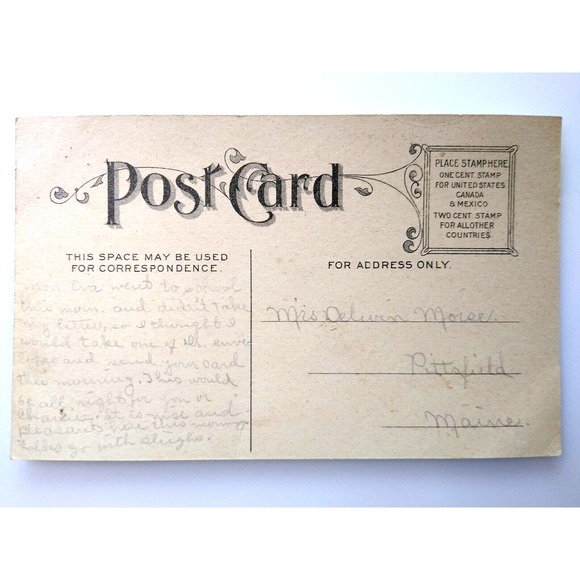 Post Card
PLACE STAMP HERE
ONE CENT STAMP
FOR UNITED STATES
CANADA
& MEXICO
TWO CENT STAMP
FOR ALL OTHER
COUNTRIES.
THIS SPACE MAY BE USED
FOR CORRESPONDENCE.
Eva went to school
this morn. and didn't take
my letter, so I thought I
would take one of the enve
lopes and send your card
this morning. This would
be all right for you or
Charlie. It is nice and
pleasant here this morn
folks go with sleighs.
FOR ADDRESS ONLY.
Mrs Delwin Morse.
Pittsfield
Maine.